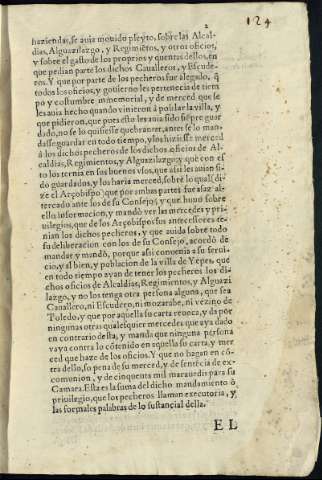 2
124
haziendas, se auia mouido pleyto, sobre las Alcal-
dias, Alguazilazgo, y Regimiẽtos, y otros oficios,
y sobre el gasto de los proprios y quentas dellos, en
que pedian parte los dichos Caualleros, y Escude-
ros. Y que por parte de los pecheros fue alegado, q̃
todos los oficios, y gouierno les pertenecia de tiem
po y costumbre inmemorial, y de merced que se
les auia hecho quando vinieron à poblar la villa, y
que pidieron, que pues esto les auia sido siẽpre guar
dado, no se lo quisiesse quebrantar, antes se lo man
dasse guardar en todo tiempo, y los hiziesse merced
à los dichos pecheros de los dichos oficios de Al-
caldias, Regimientos, y Alguazilazgo; y que con es
to los ternia en sus buenos vsos, que assi les auian si
do guardados, y los haria merced, sobre lo qual (di
ze el Arçobispo) que por ambas partes fue assaz al-
tercado ante los de su Consejo, y que huuo sobre
ello informacion, y mandò ver las mercedes y pri-
uilegios, que de los Arçobispos sus antecessores te-
nian los dichos pecheros, y que auida sobre todo
su deliberacion con los de su Consejo, acordò de
mandar y mandò, porque assi conuenia a su serui-
cio, y al bien, y poblacion de la villa de Yepes, que
en todo tiempo ayan de tener los pecheros los di-
chos oficios de Alcaldias, Regimientos, y Alguazi
lazgo, y no los tenga otra persona alguna, que sea
Cauallero, ni Escudero, ni mozarabe, ni vezino de
Toledo, y que por aquella su carta reuoca, y da por
ningunas otras qualesquier mercedes que aya dado
en contrario desta, y manda que ninguna persona
vaya contra lo cõtenido en aquella su carta, y mer
ced que haze de los oficios. Y que no hagan en cõ-
tra dello, so pena de su merced, y de sentẽcia de ex-
comunion, y de cinquenta mil marauedis para su
Camara. Esta es la suma del dicho mandamiento ò
priuilegio, que los pecheros llaman executoria, y
las formales palabras de lo sustancial della.
EL